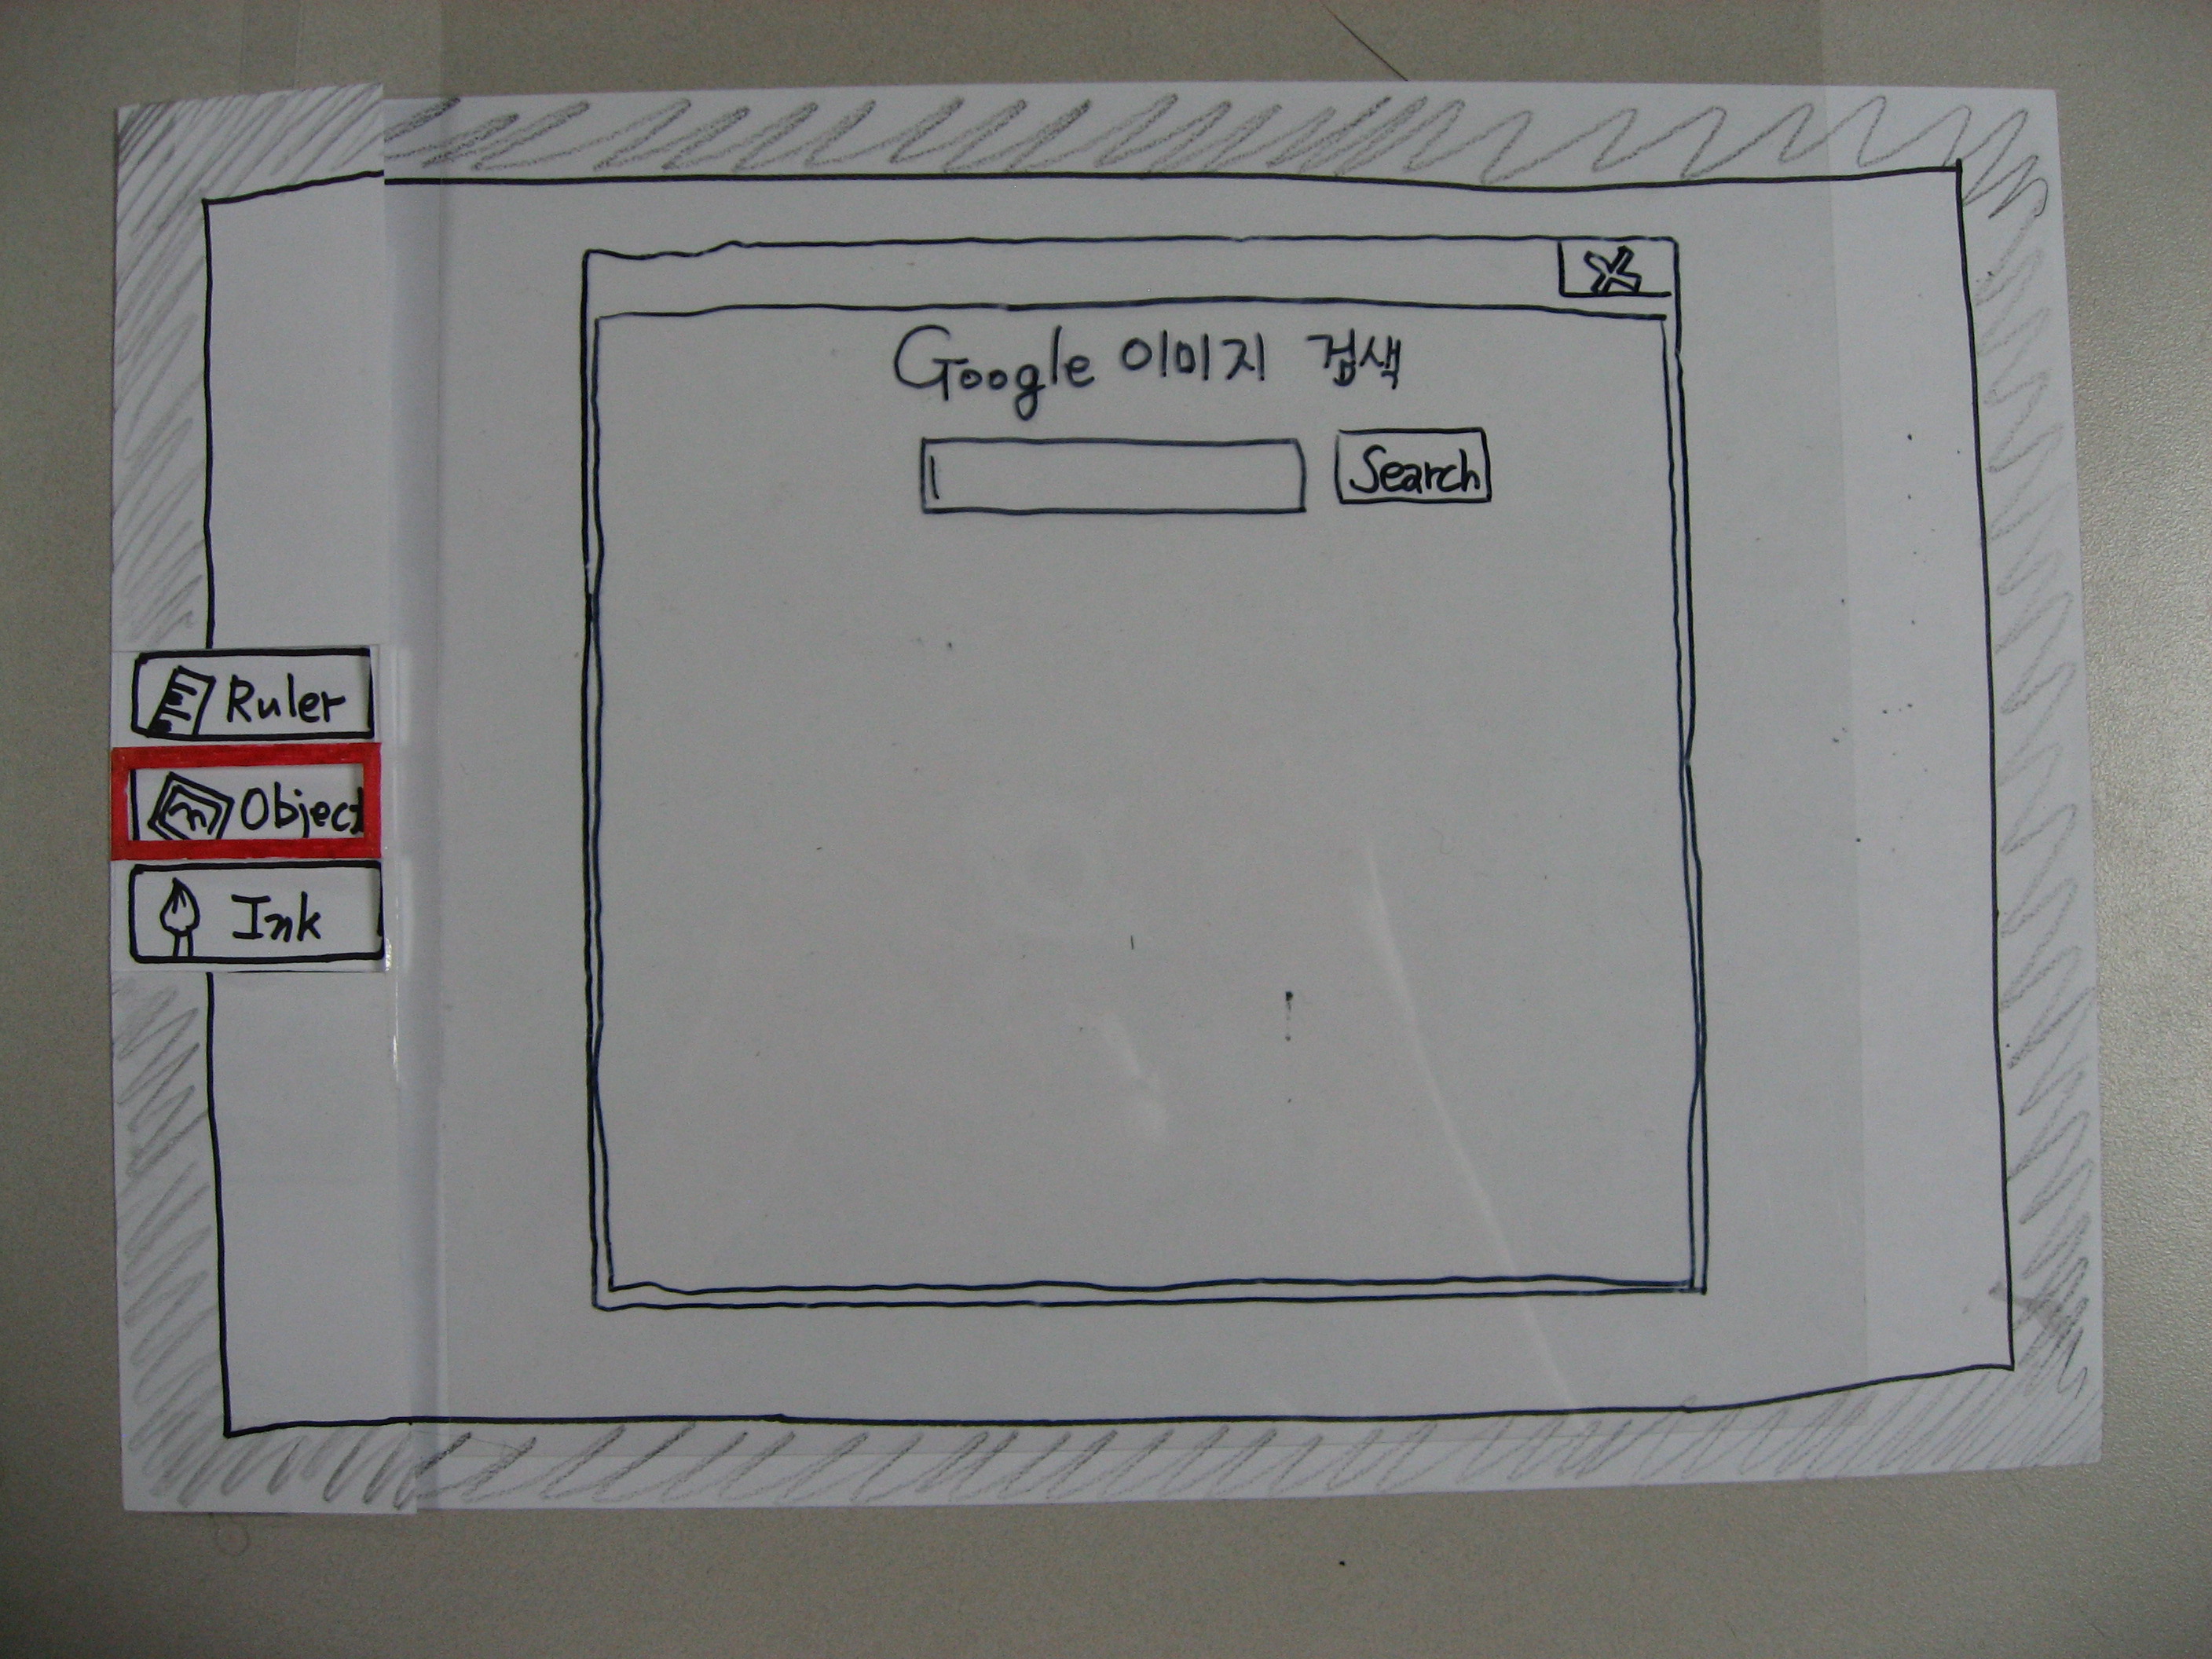 Google 이미지 검색
Search
Ruler
Object
Ink